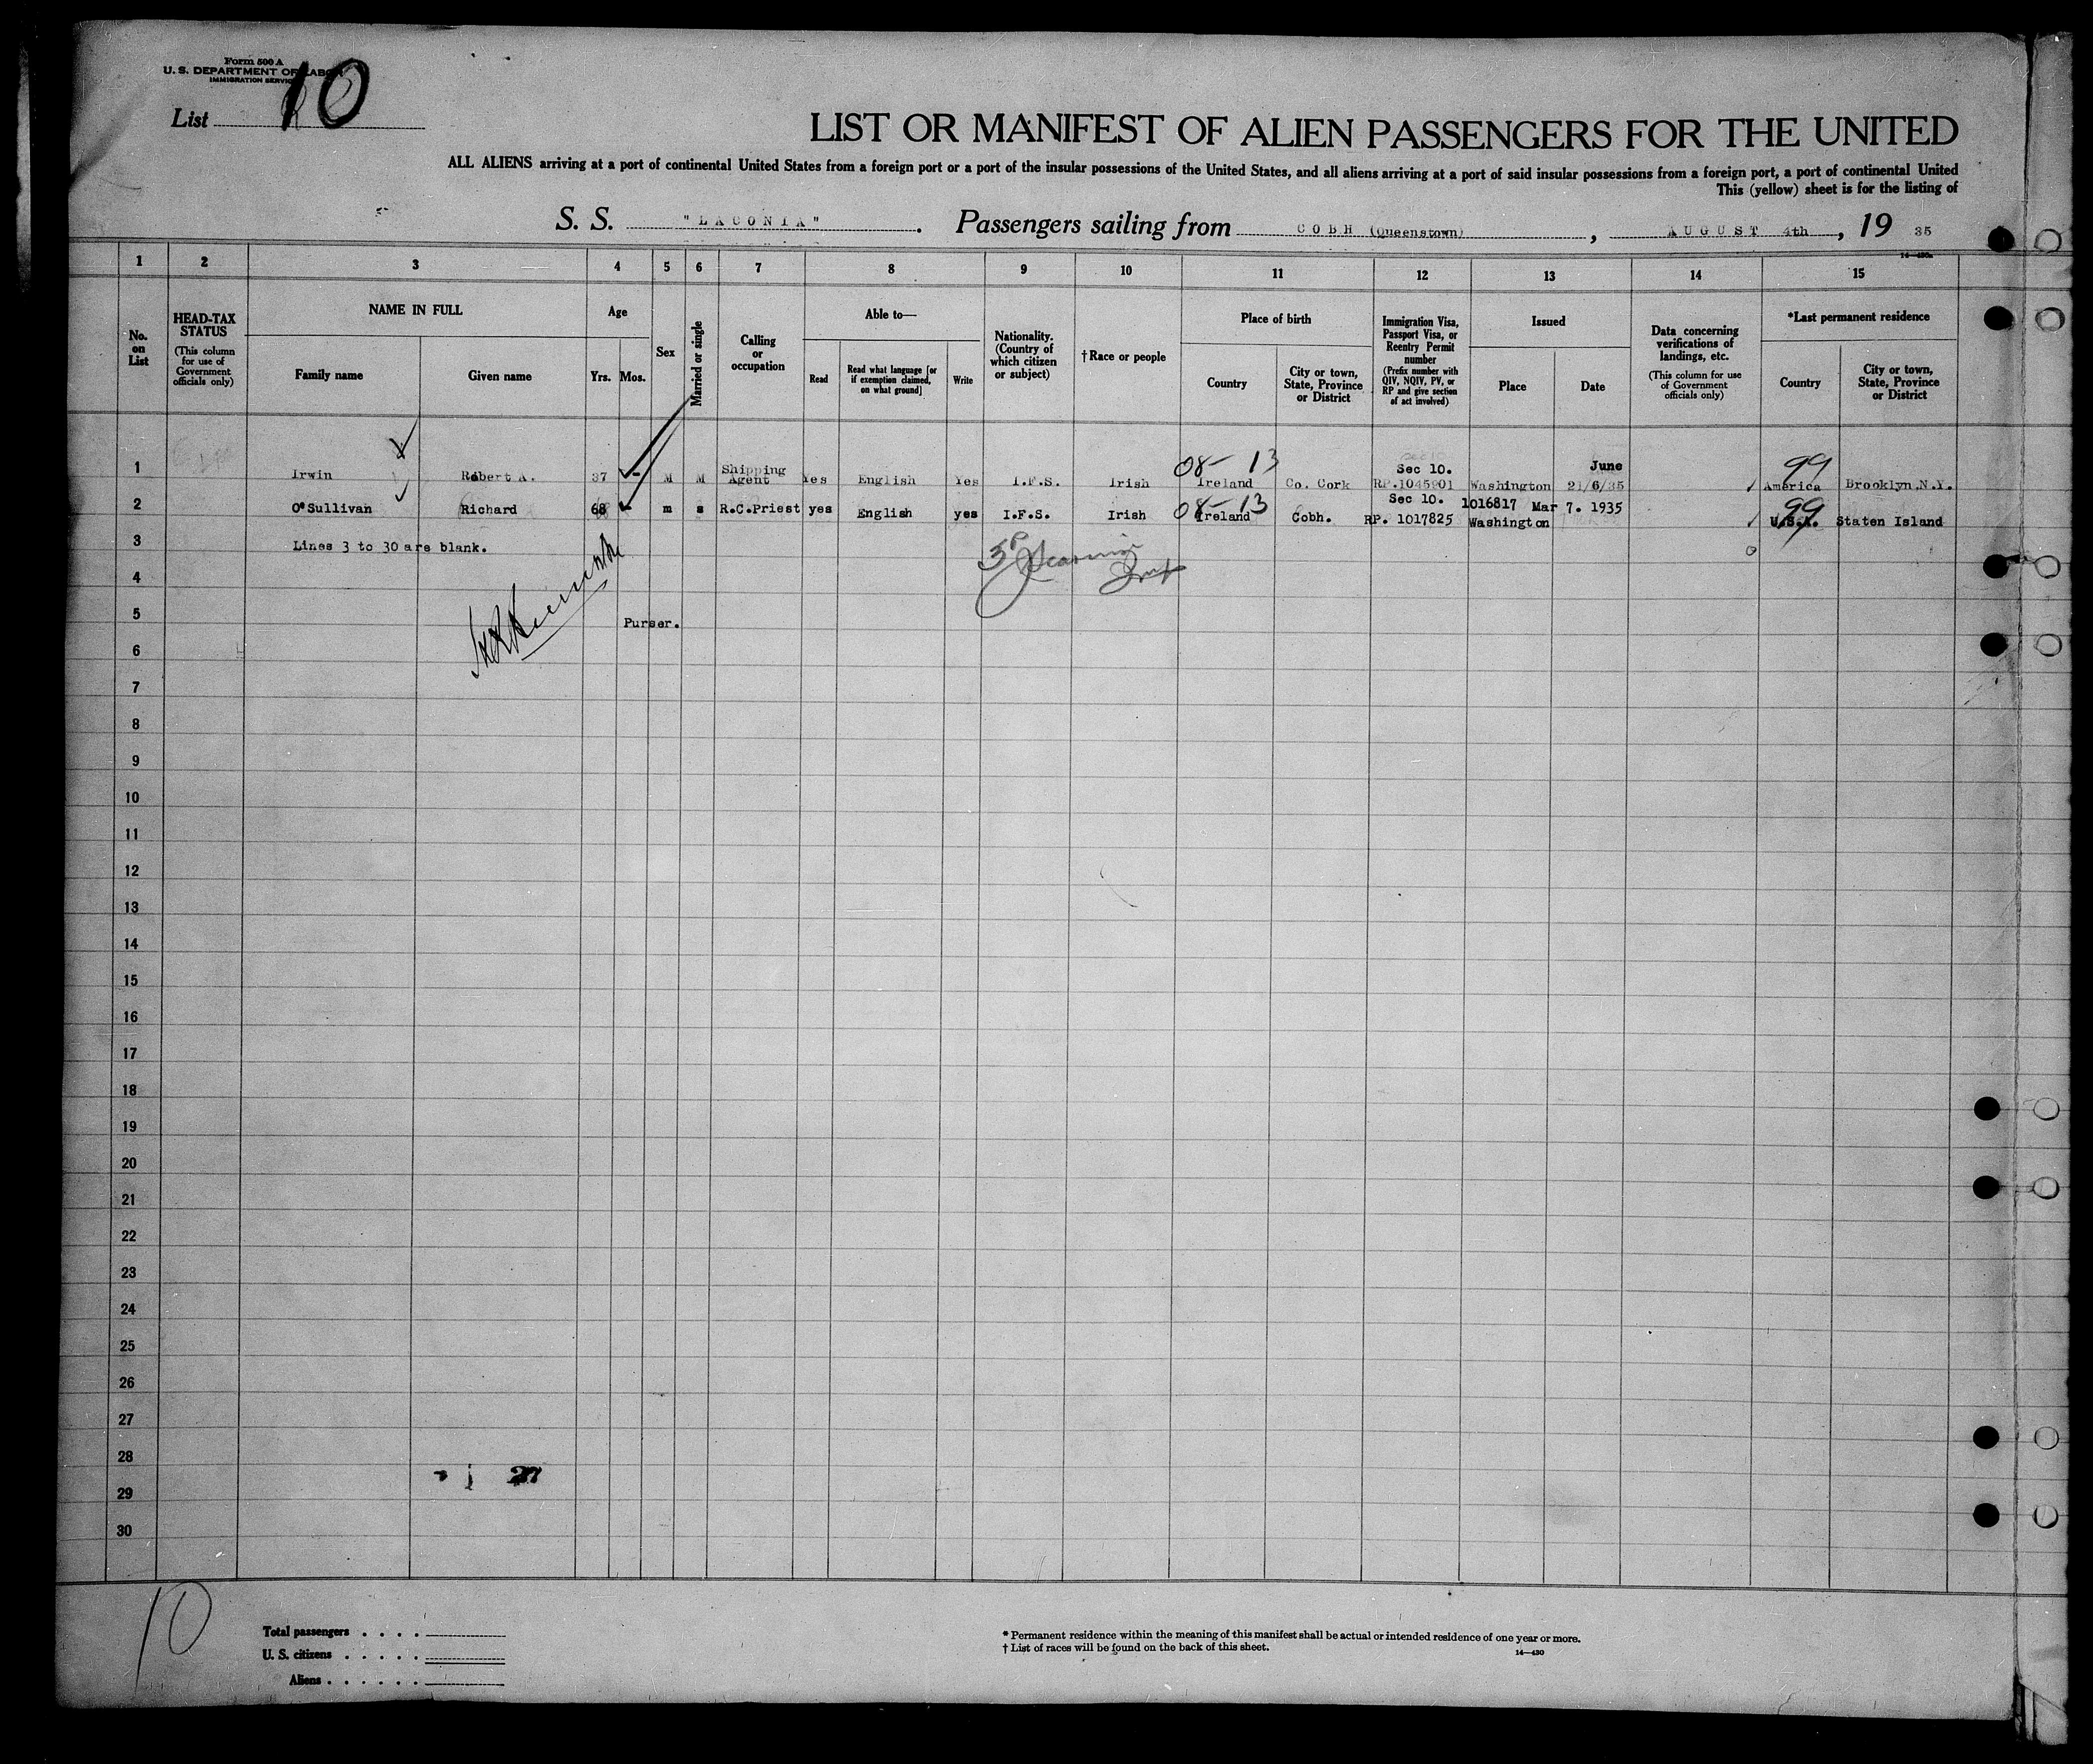 Form 500 A
U. S. DEPARTMENT OF LABOR
IMMIGRATION SERVICE
List 10
LIST OR MANIFEST OF ALIEN PASSENGERS FOR THE UNITED
ALL ALIENS arriving at a port of continental United States from a foreign port or a port of the insular possessions of the United States, and all aliens arriving at a port of said insular possessions from a foreign port, a port of continental United
This (yellow) sheet is for the listing of
S. S. "LACONIA". Passengers sailing from COBH (Queenstown), AUGUST 4th, 19 35
14—430a
1 2 3 4 5 6 7 8 9 10 11 12 13 14 15
No. on List
HEAD-TAX STATUS
(This column for use of Government officials only)
NAME IN FULL
Family name
Given name
Age
Yrs. Mos.
Sex
Married or single
Calling or occupation
Able to—
Read
Read what language [or if exemption claimed, on what ground]
Write
Nationality. (Country of which citizen or subject)
† Race or people
Place of birth
Country
City or town, State, Province or District
Immigration Visa, Passport Visa, or Reentry Permit number
(Prefix number with QIV, NQIV, PV, or RP and give section of act involved)
Issued
Place
Date
Data concerning verifications of landings, etc.
(This column for use of Government officials only)
*Last permanent residence
Country
City or town, State, Province or District
1 Irwin Robert A. 37 - M M Shipping Agent Yes English Yes I.F.S. Irish 08- 13 Ireland Co. Cork Sec 10. RP.1045901 Washington June 21/6/35 99 America Brooklyn,N.Y.
2 O'Sullivan Richard 68 - m s R.C.Priest yes English yes I.F.S. Irish 08- 13 Ireland Cobh. Sec 10. RP. 1017825 1016817 Washington Mar 7. 1935 99 U.S.A. Staten Island
3 Lines 3 to 30 are blank.
4
5 Purser.
6
7
8
9
10
11
12
13
14
15
16
17
18
19
20
21
22
23
24
25
26
27
28
29
30
27
10
Total passengers . . . .
U. S. citizens . . . . .
Aliens . . . . . .
* Permanent residence within the meaning of this manifest shall be actual or intended residence of one year or more.
† List of races will be found on the back of this sheet.
14—430